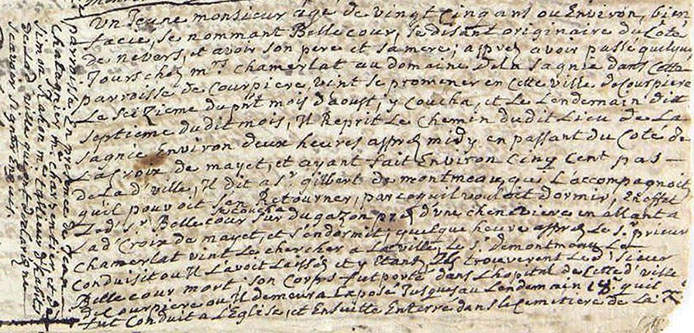 Un jeune monsieur âgé de vingt cinq ans ou Environ, bien
facié, se nommant Bellecour, se disant originaire du Coté
de nevers, et avoir son pere et sa mere; aspres avoir passé quelque
Jours chés mr. chamerlat au domaine de la sagnie dans Cette
parroisse de Courpiere, vint se promener en Cette ville de Courpiere
Le seizieme du prnt mois d'aoust, y Coucha, et Le Lendemain dix
septieme du dit mois, Il Reprit Le Chemin du dit Lieu de La
sagnie Environ deux heures aspres midy, en passant du Coté de
La Croix de mayet, et ayant fait Environ Cinq Cent pas
de La d. ville, Il dit a sr. gilbert de montmeau, qui L'accompagnoit
qu'il pouvoit s'en Retourner, parcequ'il vouloit dormir, En effet
Led. sr. Bellecour se coucha sur du gazon pres d'une cheneviere en allant a
Lad. Croix de mayet, et s'endormit; quelque heure aspres Le sr. prieur
Chamerlat vint Le chercher a La ville, Le sr. de montmeau Le
Conduisit ou Il L'avoit Laissé, et y Etant Ils trouverent Le d. sieur
Belle cour mort, son Corps fut porté dans L'hopital de Cette d. ville
de Courpiere ou Il demeura exposé Jusques au Lendemain 18. qu'il
fut Conduit a L'Eglise, et Ensuitte Enterré dans Le Cemetiere de La
parroisse, En presence de Jean
Chatagnier, m charpentier, et de
Simon
de La d. ville